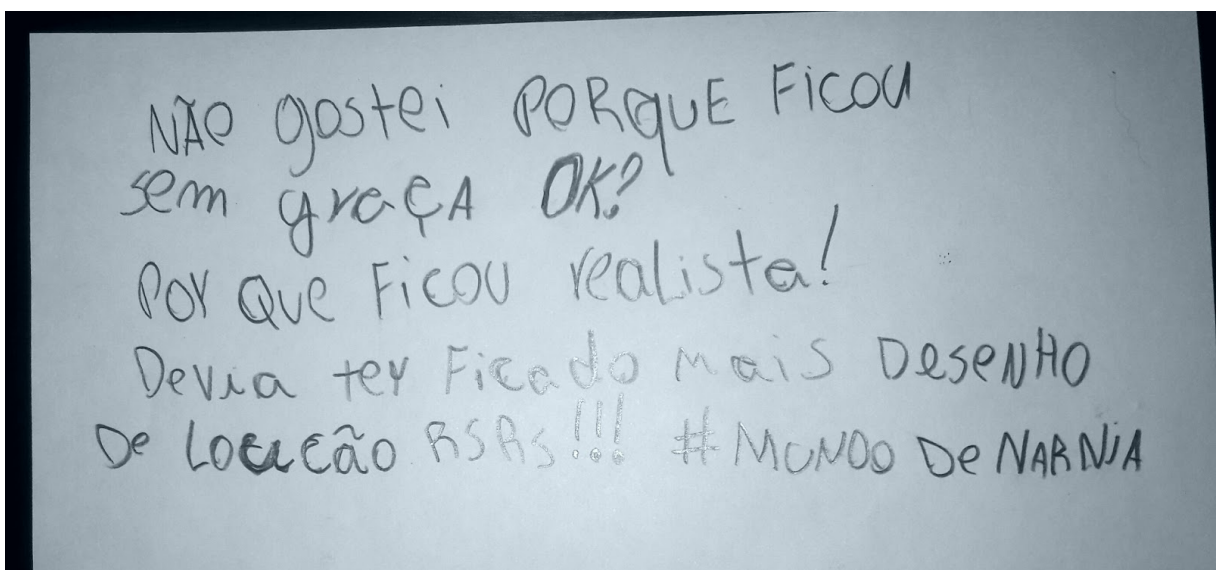 NÃO gostei PORqUE Ficou
sem graçA OK?
Por Que Ficou realista!
Devia ter Ficado mais DeseNHO
De Locução RSRs!!! #MUNDO De NARNiA